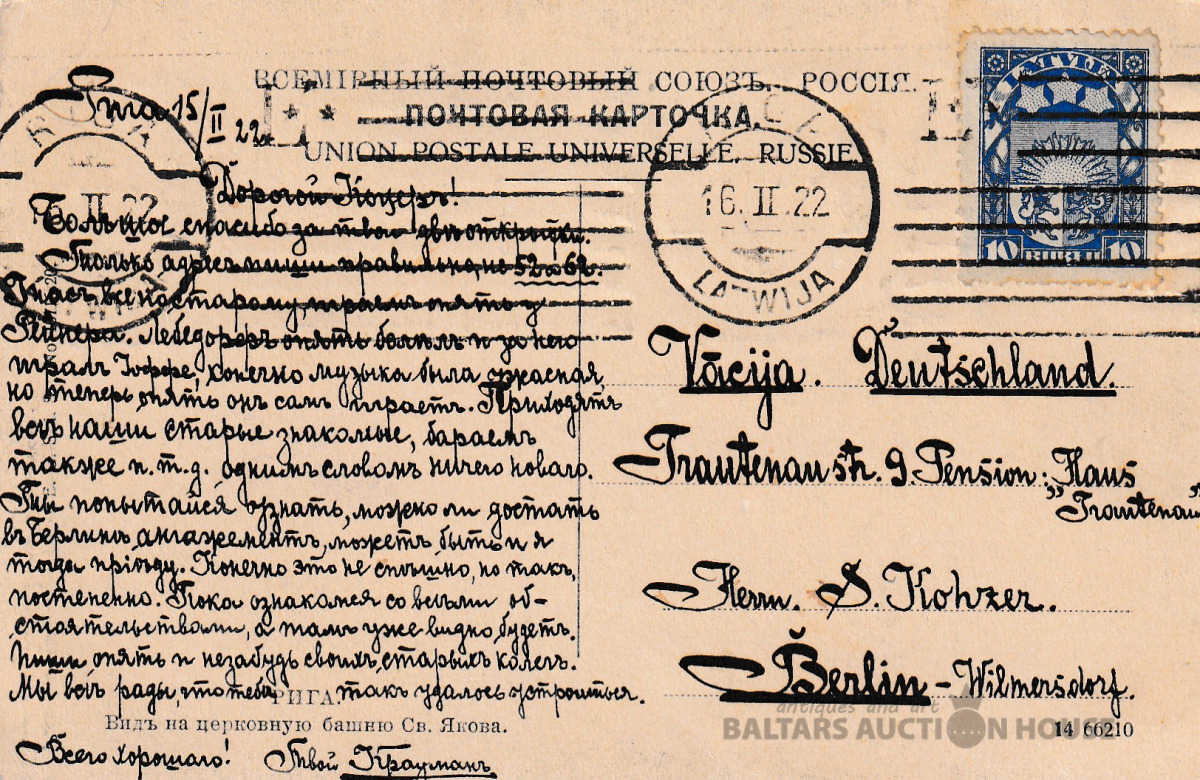 ВСЕМІРНЫЙ ПОЧТОВЫЙ СОЮЗЪ. РОССІЯ.
ПОЧТОВАЯ КАРТОЧКА.
UNION POSTALE UNIVERSELLE. RUSSIE.
Рига 15/II 22
LATVIJA
10 10
16. II. 22
LATWIJA
Дорогой Коцеръ!
Большое спасибо за твои двѣ открытки.
Только адресъ пиши правильно, не 52 а 62.
У насъ все по старому, играемъ опять у
Рейнера. опять болѣлъ и за него
игралъ Іоффе, конечно музыка была ужасная,
но теперь опять онъ самъ играетъ. Приходятъ
всѣ наши старые знакомые,
также и т. д. однимъ словомъ ничего новаго.
Ты попытайся узнать, можно ли достать
въ Берлинѣ ангажементъ, можетъ быть и я
тогда пріѣду. Конечно это не спѣшно, но такъ,
постепенно. Пока ознакомся со всѣми об-
стоятельствами, а тамъ уже видно будетъ.
Пиши опять и незабудь своихъ старыхъ колегъ.
Мы всѣ рады, что тебѣ такъ удалось устроиться.
РИГА.
Видъ на церковную башню Св. Якова.
Всего хорошаго! Твой Крауманъ
Vācija. Deutschland.
Trautenau str. 9. Pension: Haus
"Trautenau"
Herrn. S. Kohzer.
Berlin - Wilmersdorf.
antiques and art
BALTARS AUCTION HOUSE
14 66210